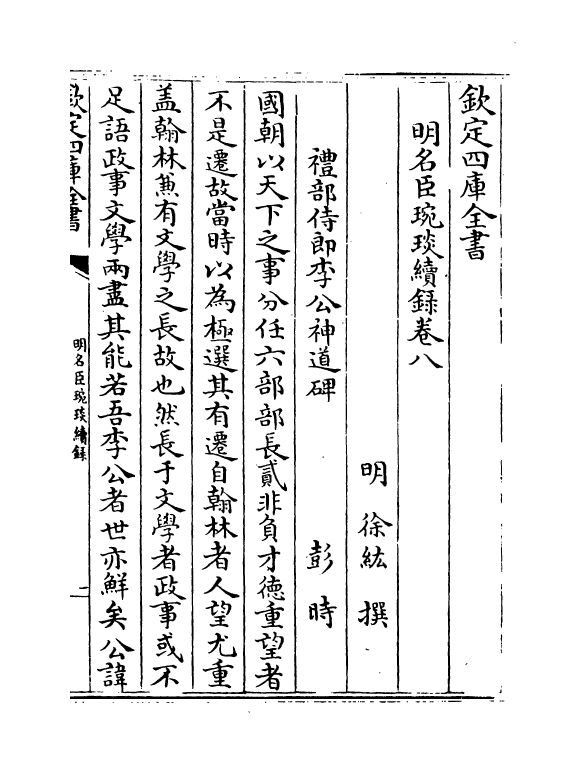 欽定四庫全書
明名臣琬琰續録卷八
明 徐紘 撰
禮部侍郎李公神道碑 彭時
國朝以天下之事分任六部部長貳非負才德重望者
不是遷故當時以為極選其有遷自翰林者人望尤重
盖翰林兼有文學之長故也然長于文學者政事或不
足語政事文學兩盡其能若吾李公者世亦鮮矣公諱
欽定四庫全書
明名臣琬琰續録